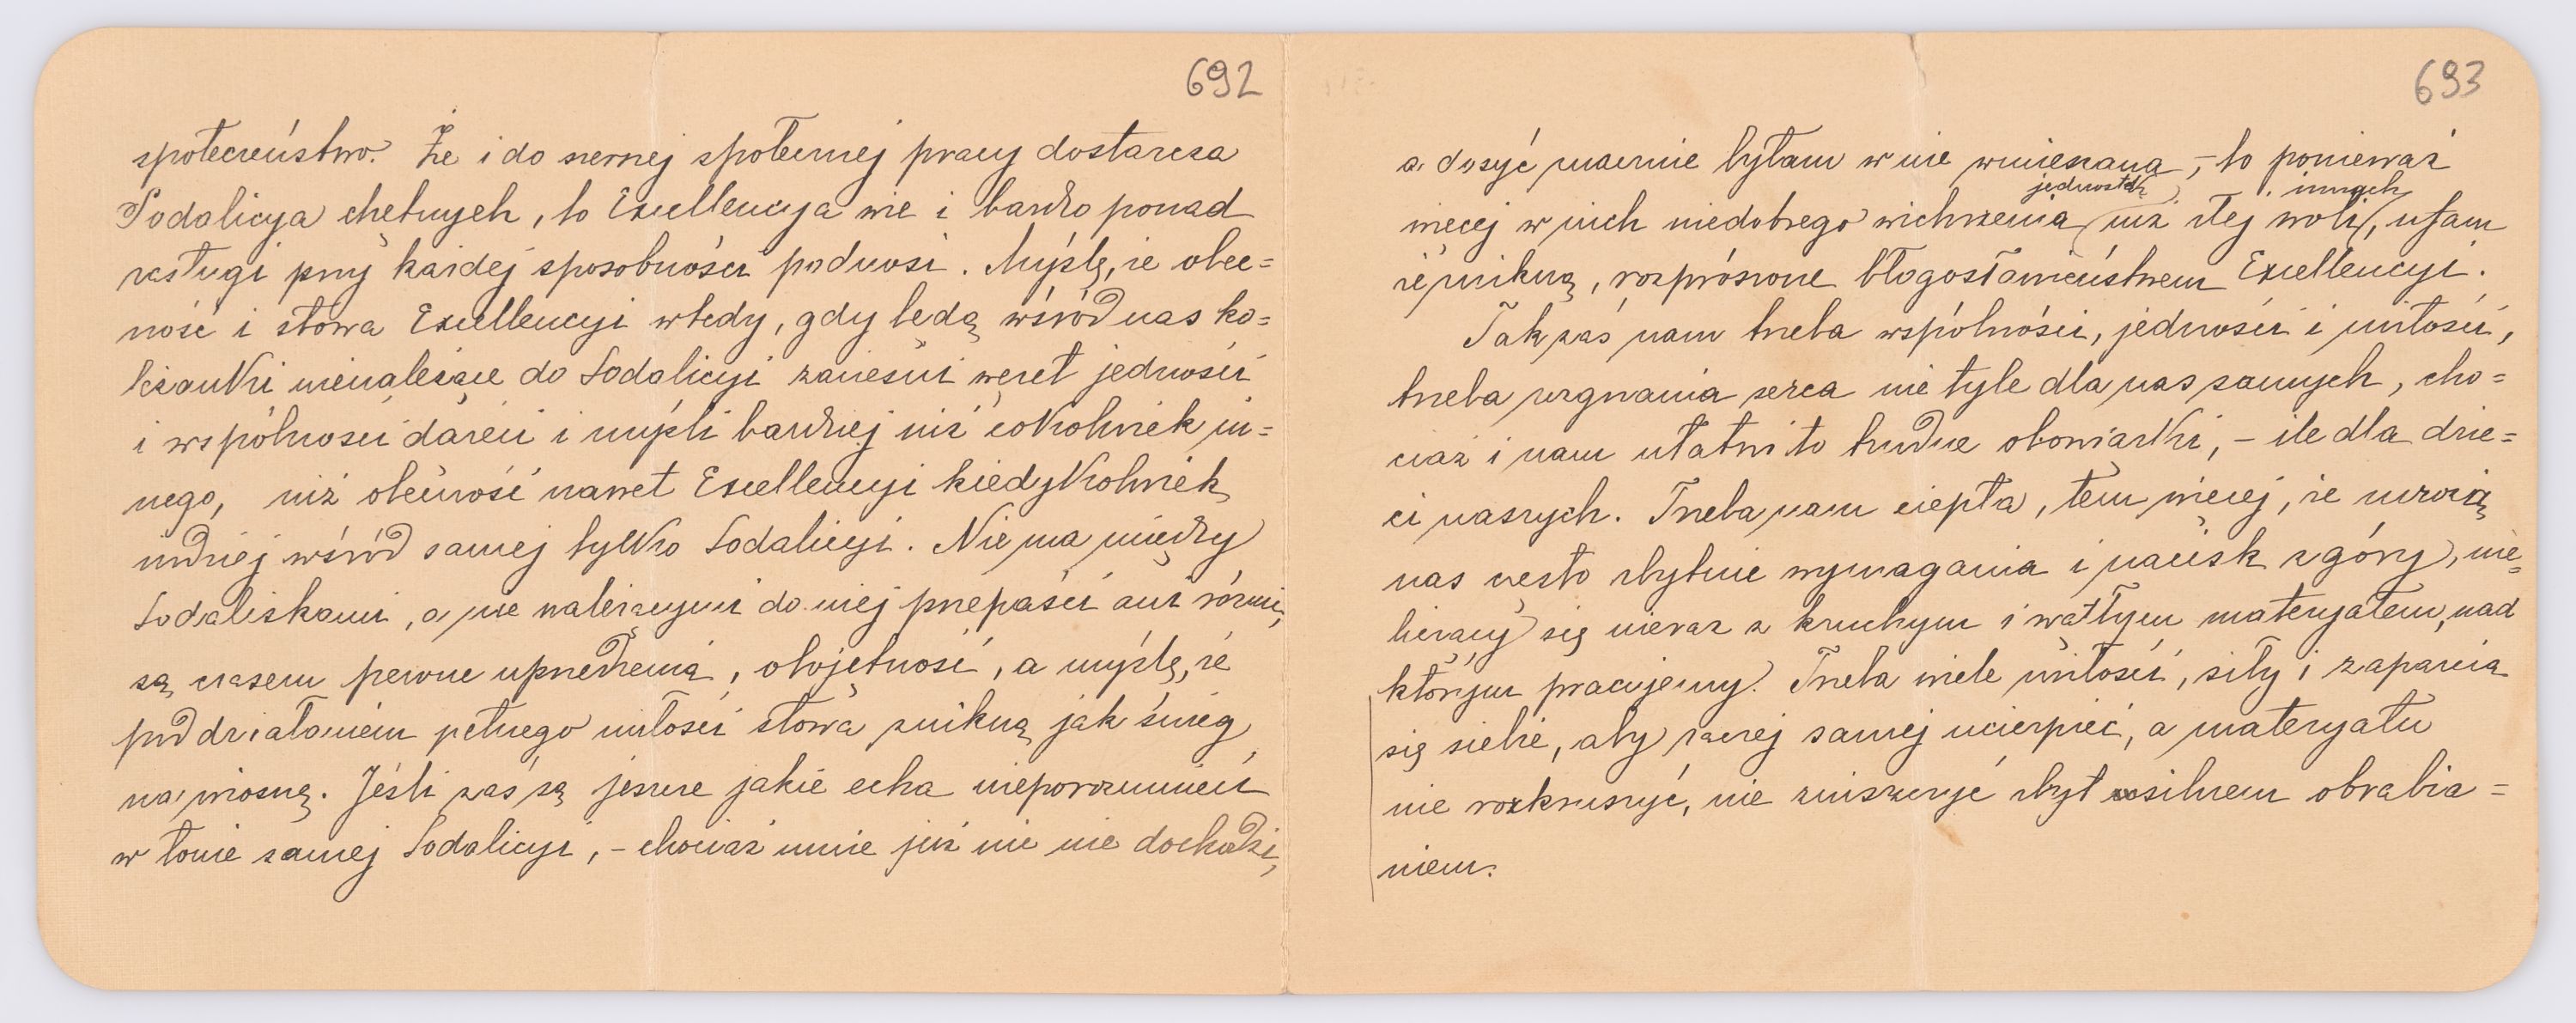 692
społeczeństwo. Że i do szerszej społecznej pracy dostarcza
Sodalicya chętnych, to Excellencya wie i bardzo ponad
zasługi przy każdej sposobności podnosi. Myślę, że obec=
ność i słowa Excellencyi wtedy, gdy będą wśród nas ko=
leżanki nienależące do Sodalicyi zacieśni węzeł jedności
i wspólności dążeń i myśli bardziej niż cokolwiek in=
nego, niż obecność nawet Excellencyi kiedykolwiek
indziej wśród samej tylko Sodalicyi. Nie ma między
Sodaliskami, a nie należącymi do niej przepaści ani różnic,
są czasem pewne uprzedzenia, obojętność, a myślę, że
pod działaniem pełnego miłości słowa znikną jak śnieg
na wiosnę. Jeśli zaś są jeszcze jakie echa nieporozumień
w łonie samej Sodalicyi, - chociaż mnie już nic nie dochodzi,
693
a dosyć znacznie byłam w nie wmieszana, - to ponieważ
więcej w nich niedobrego wichrzenia jednostki, niż złej woli innych, ufam
że znikną, rozprószone błogosławieństwem Excellencyi.
Tak zaś nam trzeba wspólności, jedności i miłości,
trzeba rozgrzania serca nie tyle dla nas samych, cho=
ciaż i nam ułatwi to trudne obowiązki, - ile dla dzie=
ci naszych. Trzeba nam ciepła, tem więcej, że mrożą
nas często zbytnie wymagania i nacisk z góry, nie
liczący się nieraz z kruchym i wątłym materyałem, nad
którym pracujemy. Trzeba wiele miłości, siły i zaparcia
się siebie, aby raczej samej ucierpieć, a materyału
nie rozkruszyć, nie zniszczyć zbyt usilnem obrabia=
niem.